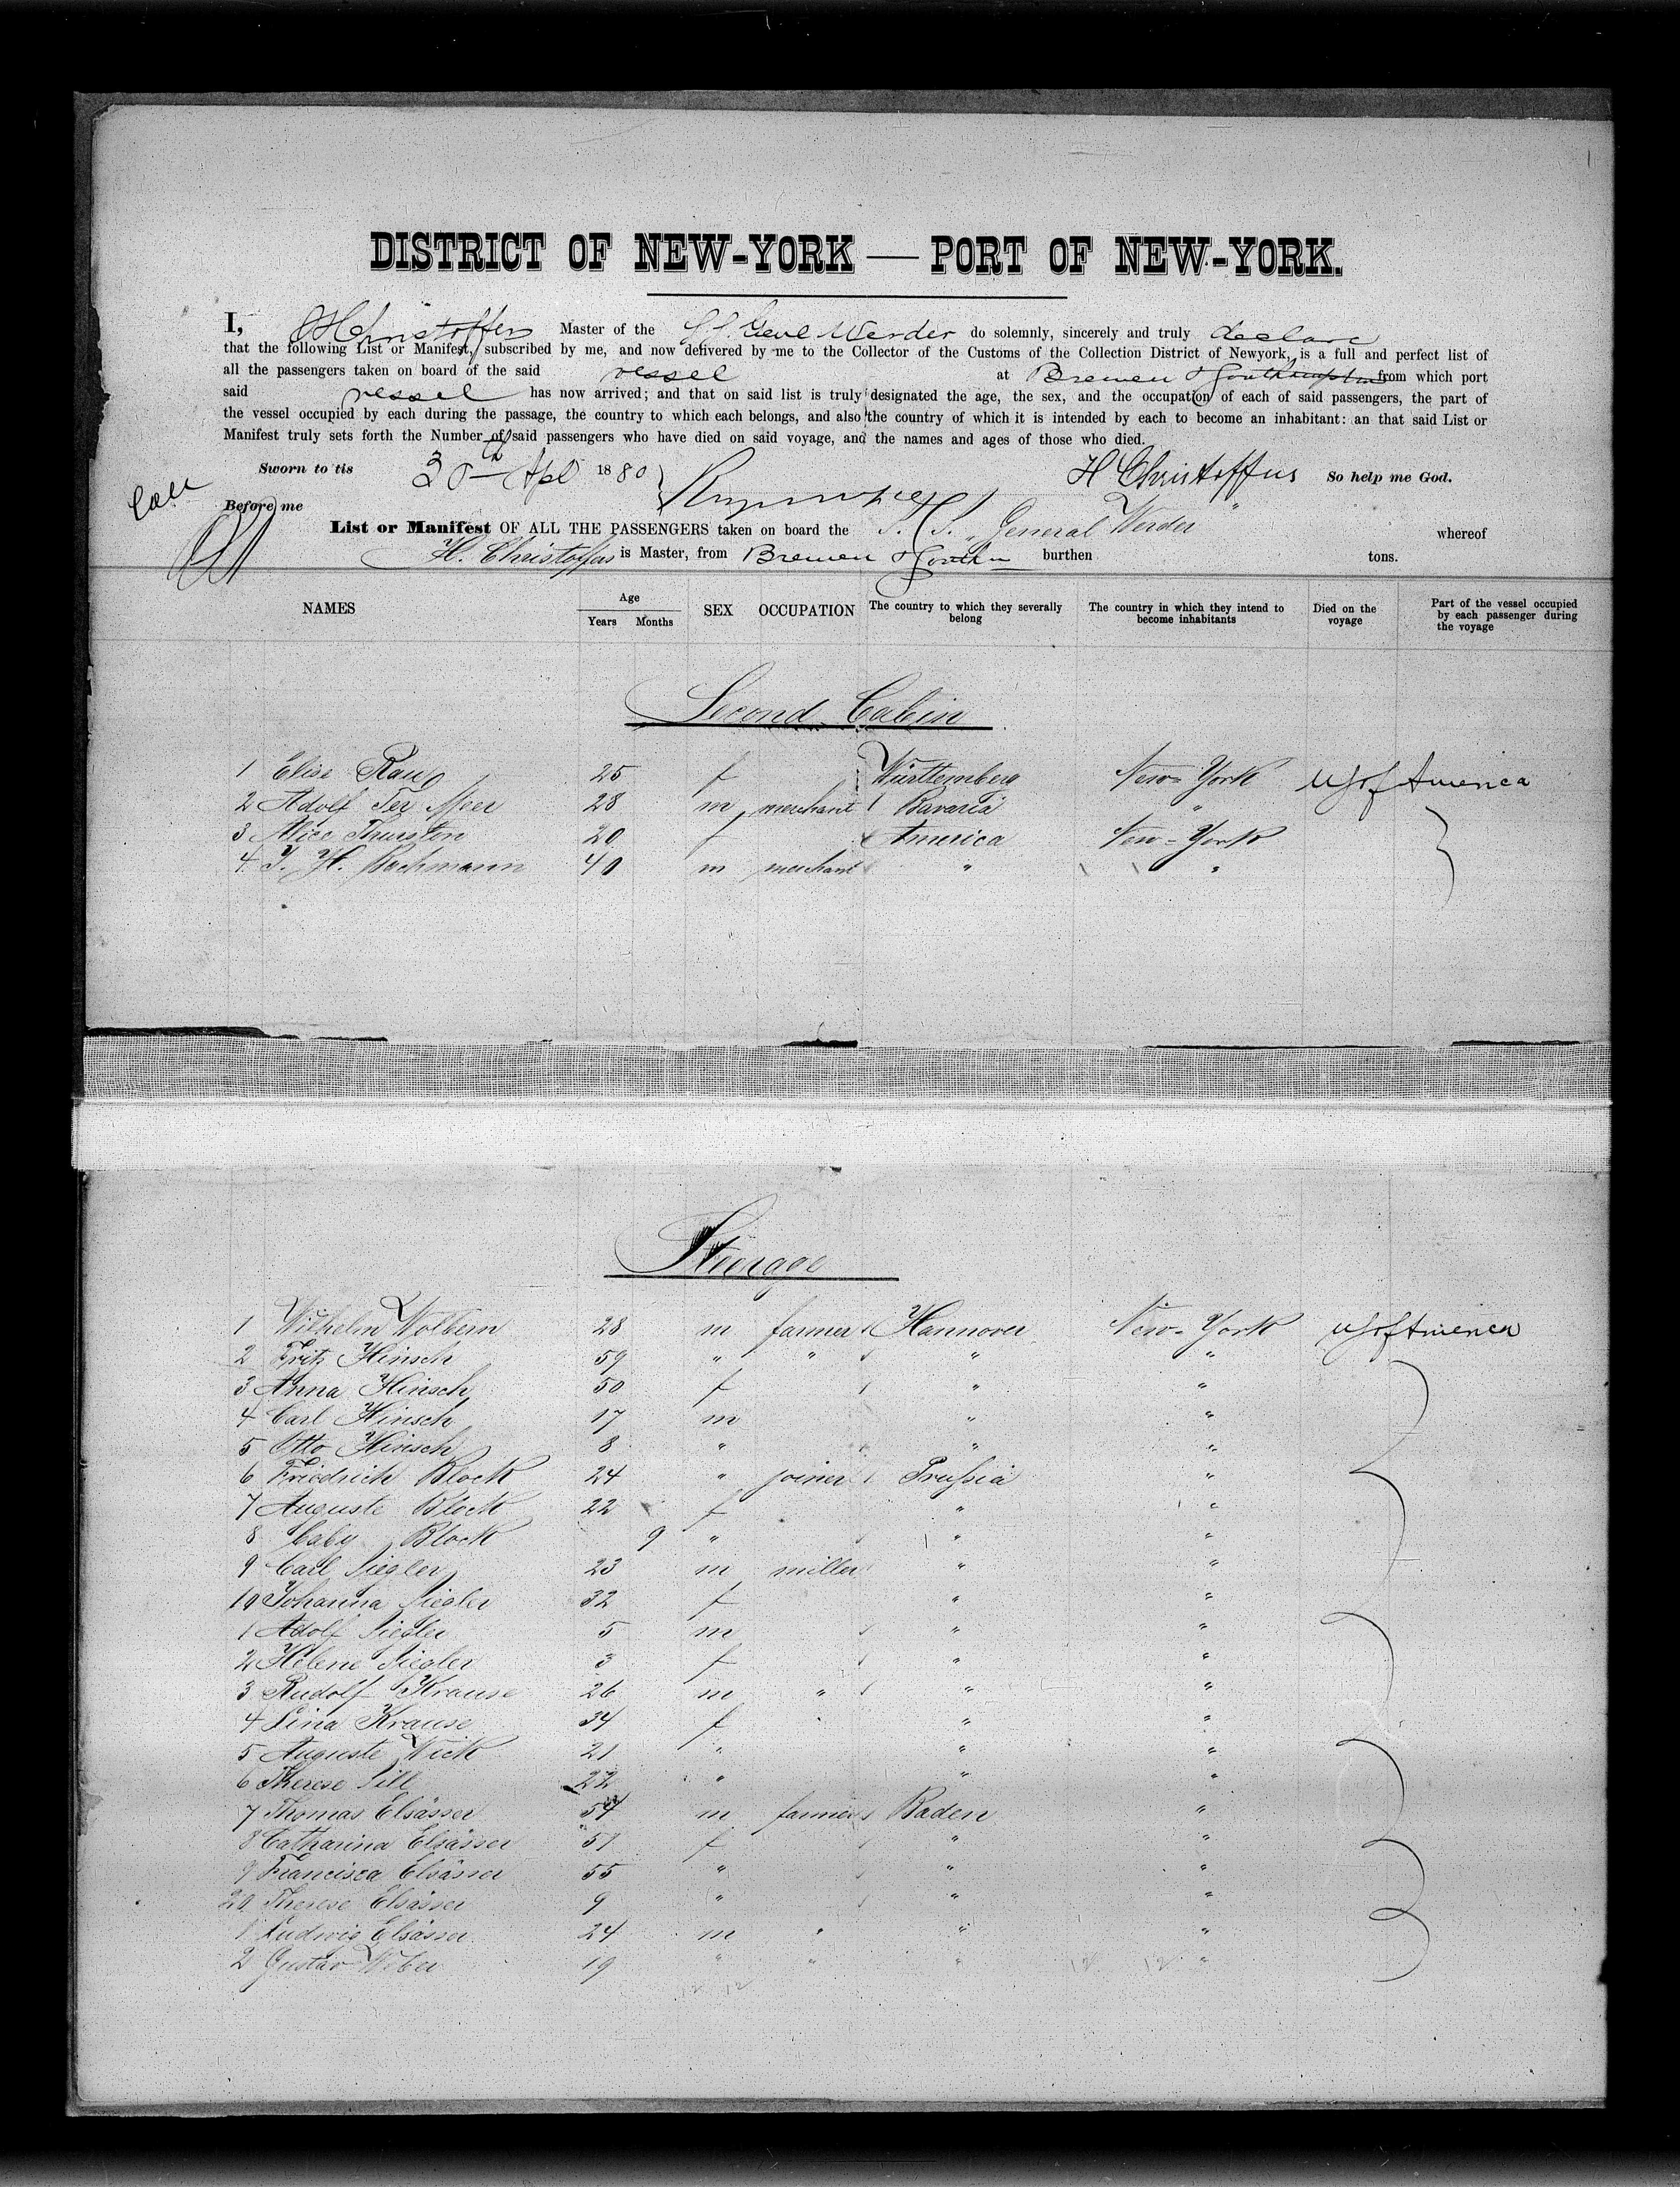 DISTRICT OF NEW-YORK — PORT OF NEW-YORK.
I, H Christoffers Master of the S.S. Genl Werder do solemnly, sincerely and truly declare
that the following List or Manifest, subscribed by me, and now delivered by me to the Collector of the Customs of the Collection District of Newyork, is a full and perfect list of
all the passengers taken on board of the said vessel at Bremen & Southampton from which port
said vessel has now arrived; and that on said list is truly designated the age, the sex, and the occupation of each of said passengers, the part of
the vessel occupied by each during the passage, the country to which each belongs, and also the country of which it is intended by each to become an inhabitant: an that said List or
Manifest truly sets forth the Number of said passengers who have died on said voyage, and the names and ages of those who died.
Sworn to tis 30th Apl 1880 H Christoffers So help me God.
Before me
List or Manifest OF ALL THE PASSENGERS taken on board the S. S. "General Werder" whereof
H. Christoffers is Master, from Bremen & Southn burthen tons.
NAMES Age Years Months SEX OCCUPATION The country to which they severally belong The country in which they intend to become inhabitants Died on the voyage Part of the vessel occupied by each passenger during the voyage
Second Cabin
1 Elise Rau 25 f Württemberg New-York US of America
2 Adolf Ter Meer 28 m merchant Bavaria "
3 Alice Thurston 20 f America New-York
4 J. H. Bachmann 40 m merchant " "
Steerage
1 Wilhelm Wolbern 28 m farmer Hannover New-York US of America
2 Fritz Hinsch 59 " " " "
3 Anna Hinsch 50 f " "
4 Carl Hinsch 17 m " "
5 Otto Hinsch 8 " " "
6 Friedrich Block 24 " joiner Prussia "
7 Auguste Block 22 f " "
8 Baby Block 9 " " "
9 Carl Siegler 23 m miller " "
10 Johanna Siegler 32 f " "
1 Adolf Siegler 5 m " "
2 Helene Siegler 3 f " "
3 Rudolf Krause 26 m " " "
4 Lina Krause 34 f " "
5 Auguste Wick 21 " " "
6 Therese Sill 22 " " "
7 Thomas Elsässer 54 m farmer Baden "
8 Catharina Elsässer 57 f " "
9 Francisca Elsässer 55 " " "
20 Therese Elsässer 9 " " "
1 Ludwig Elsässer 24 m " " "
2 Gustav Weber 19 " " " "
12 12 12 12